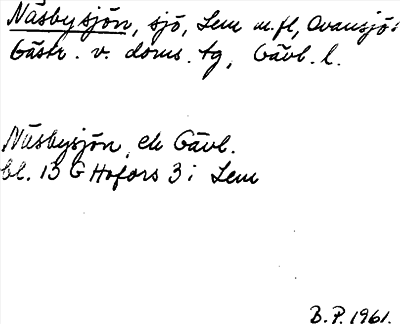 Näsbysjön, sjö, Lem m.fl, Ovansjö:
Gästr. v. doms. tg, Gävl. l.
Näsbysjön ek Gävl.
bl. 13 G Hofors 3 i Lem
B.P. 1961.